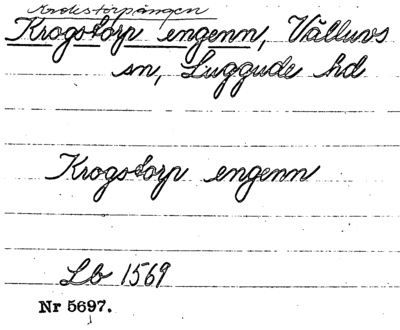 Krokstorpängen
Krogstorp engenn, Välluvs
sn, Luggude hd
Krogstorp engenn
Lb 1569
Nr 5697.